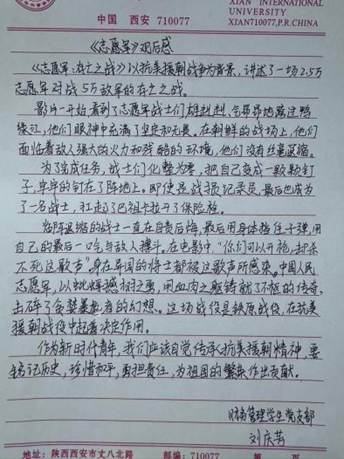 XI'AN INTERNATIONAL
UNIVERSITY
中国 西安 710077
XIAN710077,P.R.CHINA
《志愿军》观后感
《志愿军:存亡之战》以抗美援朝战争为背景,讲述了一场2.5万
志愿军对战5万敌军的存亡之战。
影片一开始看到了志愿军战士们雄赳赳,气昂昂地跨过鸭
绿江,他们眼神中充满了坚定和无畏。在朝鲜的战场上,他们
面临着敌人强大的火力和残酷的环境,他们没有丝毫退缩。
为了完成任务,战士们化整为零,把自己变成一颗颗钉
子,牢牢的钉在了阵地上。即使是战损记录员,最后也成为
了一名战士,扛起了巴祖卡拉开了保险放。
临阵退缩的战士一直在自责后悔,最后用身体挡住子弹,用
自己的最后一口气与敌人搏斗。在电影中,"你们可以开炮,却杀
不死这歌声"身在异国的将士都被这歌声所感染。中国人民
志愿军,以蚍蜉撼树之勇,用血肉之躯铸就了不朽的传奇,
击碎了贪婪暴虐者的幻想。这场战役是铁原战役,在抗美
援朝战役中起着决定作用。
作为新时代青年,我们应该自觉传承抗美援朝精神,要
铭记历史,珍惜和平,勇担责任,为祖国的繁荣作出贡献。
财务管理学生党支部
刘庆
地址:陕西西安市丈八北路 邮编:710077 第 页